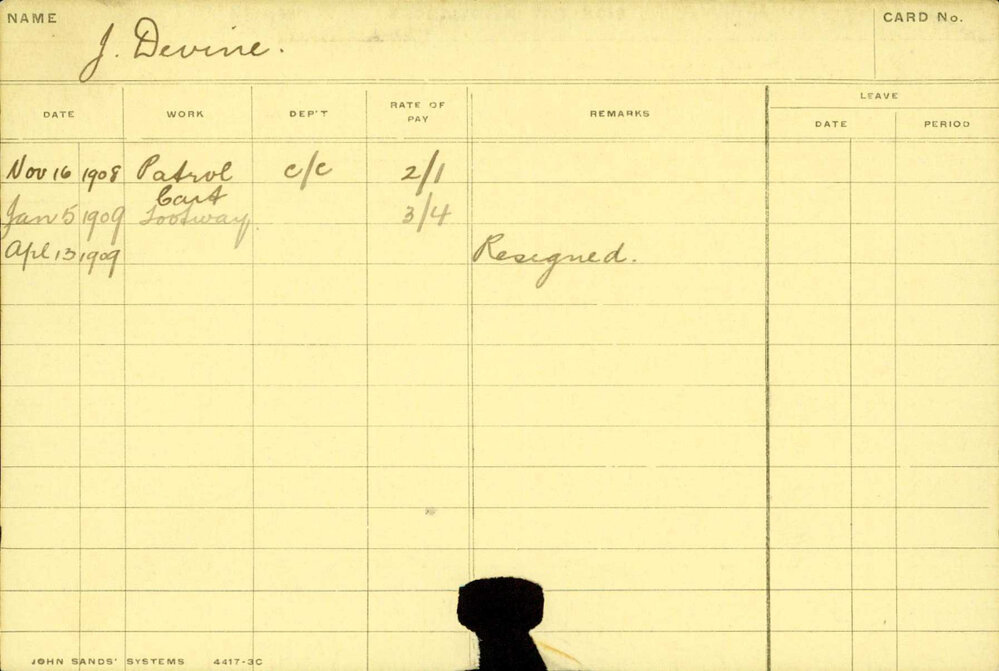 NAME
CARD No.
J. Devine.
LEAVE
DATE WORK DEP'T RATE OF PAY REMARKS DATE PERIOD
Nov 16 1908 Patrol c/c 2/1
Cart
Jan 5 1909 Footway 3/4
Apl 13 1909 Resigned.
JOHN SANDS' SYSTEMS 4417-3C